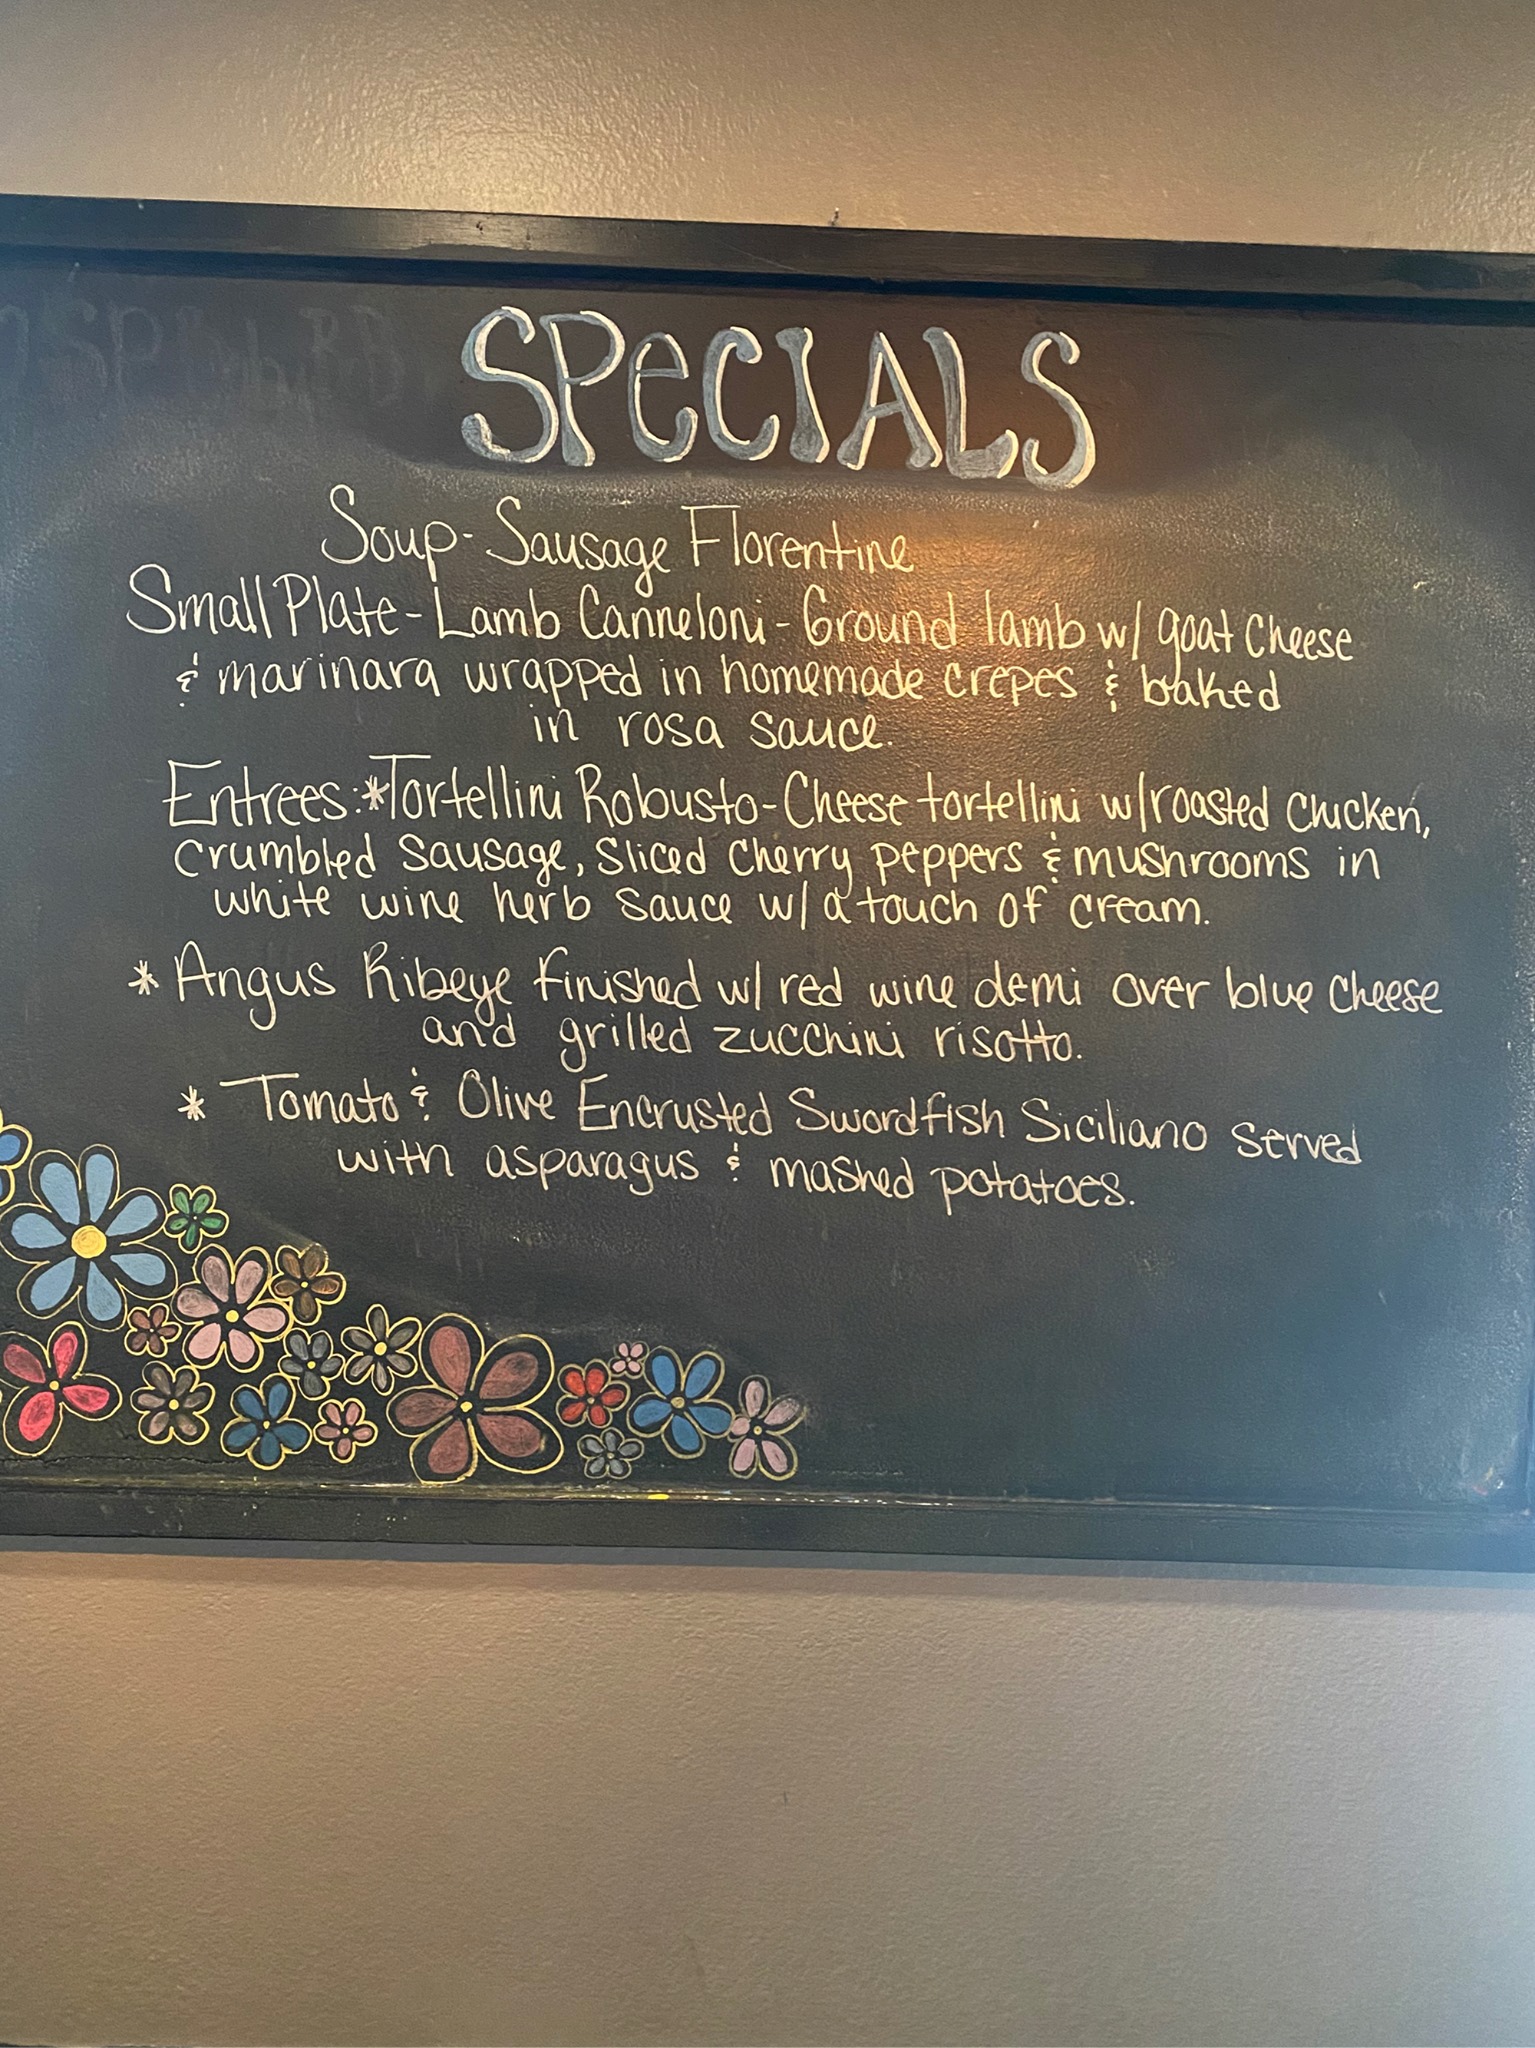 SPeCIALS
Soup-Sausage Florentine
Small Plate-Lamb Canneloni-Ground lamb w/ goat cheese
& marinara wrapped in homemade crepes & baked
in rosa sauce.
Entrees:*Tortellini Robusto-Cheese tortellini w/roasted chicken,
crumbled sausage, sliced cherry peppers & mushrooms in
white wine herb sauce w/ a touch of cream.
* Angus Ribeye finished w/ red wine demi over blue cheese
and grilled zucchini risotto.
* Tomato & Olive Encrusted Swordfish Siciliano served
with asparagus & mashed potatoes.